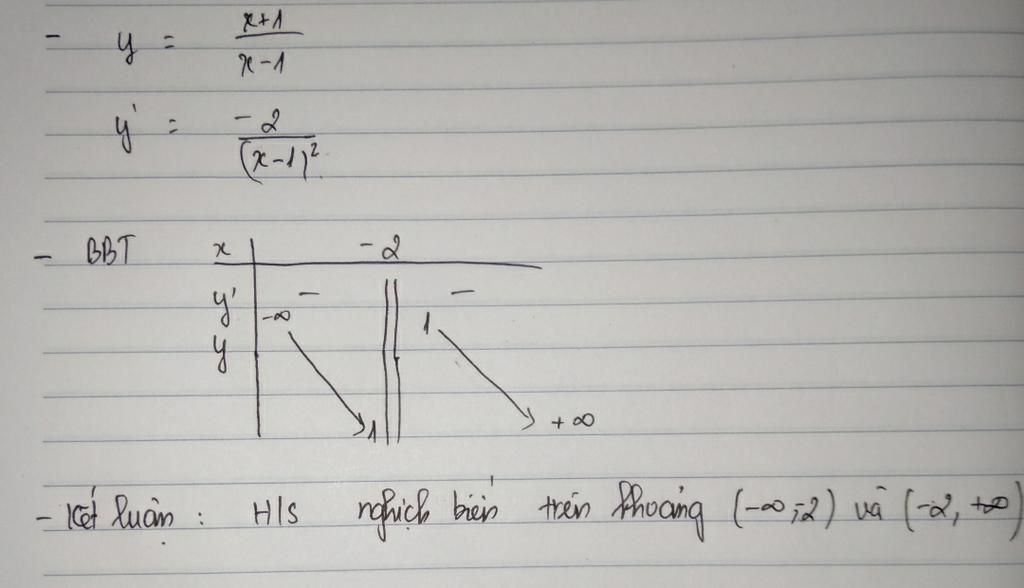 - y = x+1 / x-1
y' = -2 / (x-1)²
- BBT x -2
y' - -
-∞ 1
y
1 +∞
- Kết luận : H/S nghịch biến trên khoảng (-∞;-2) và (-2, +∞)